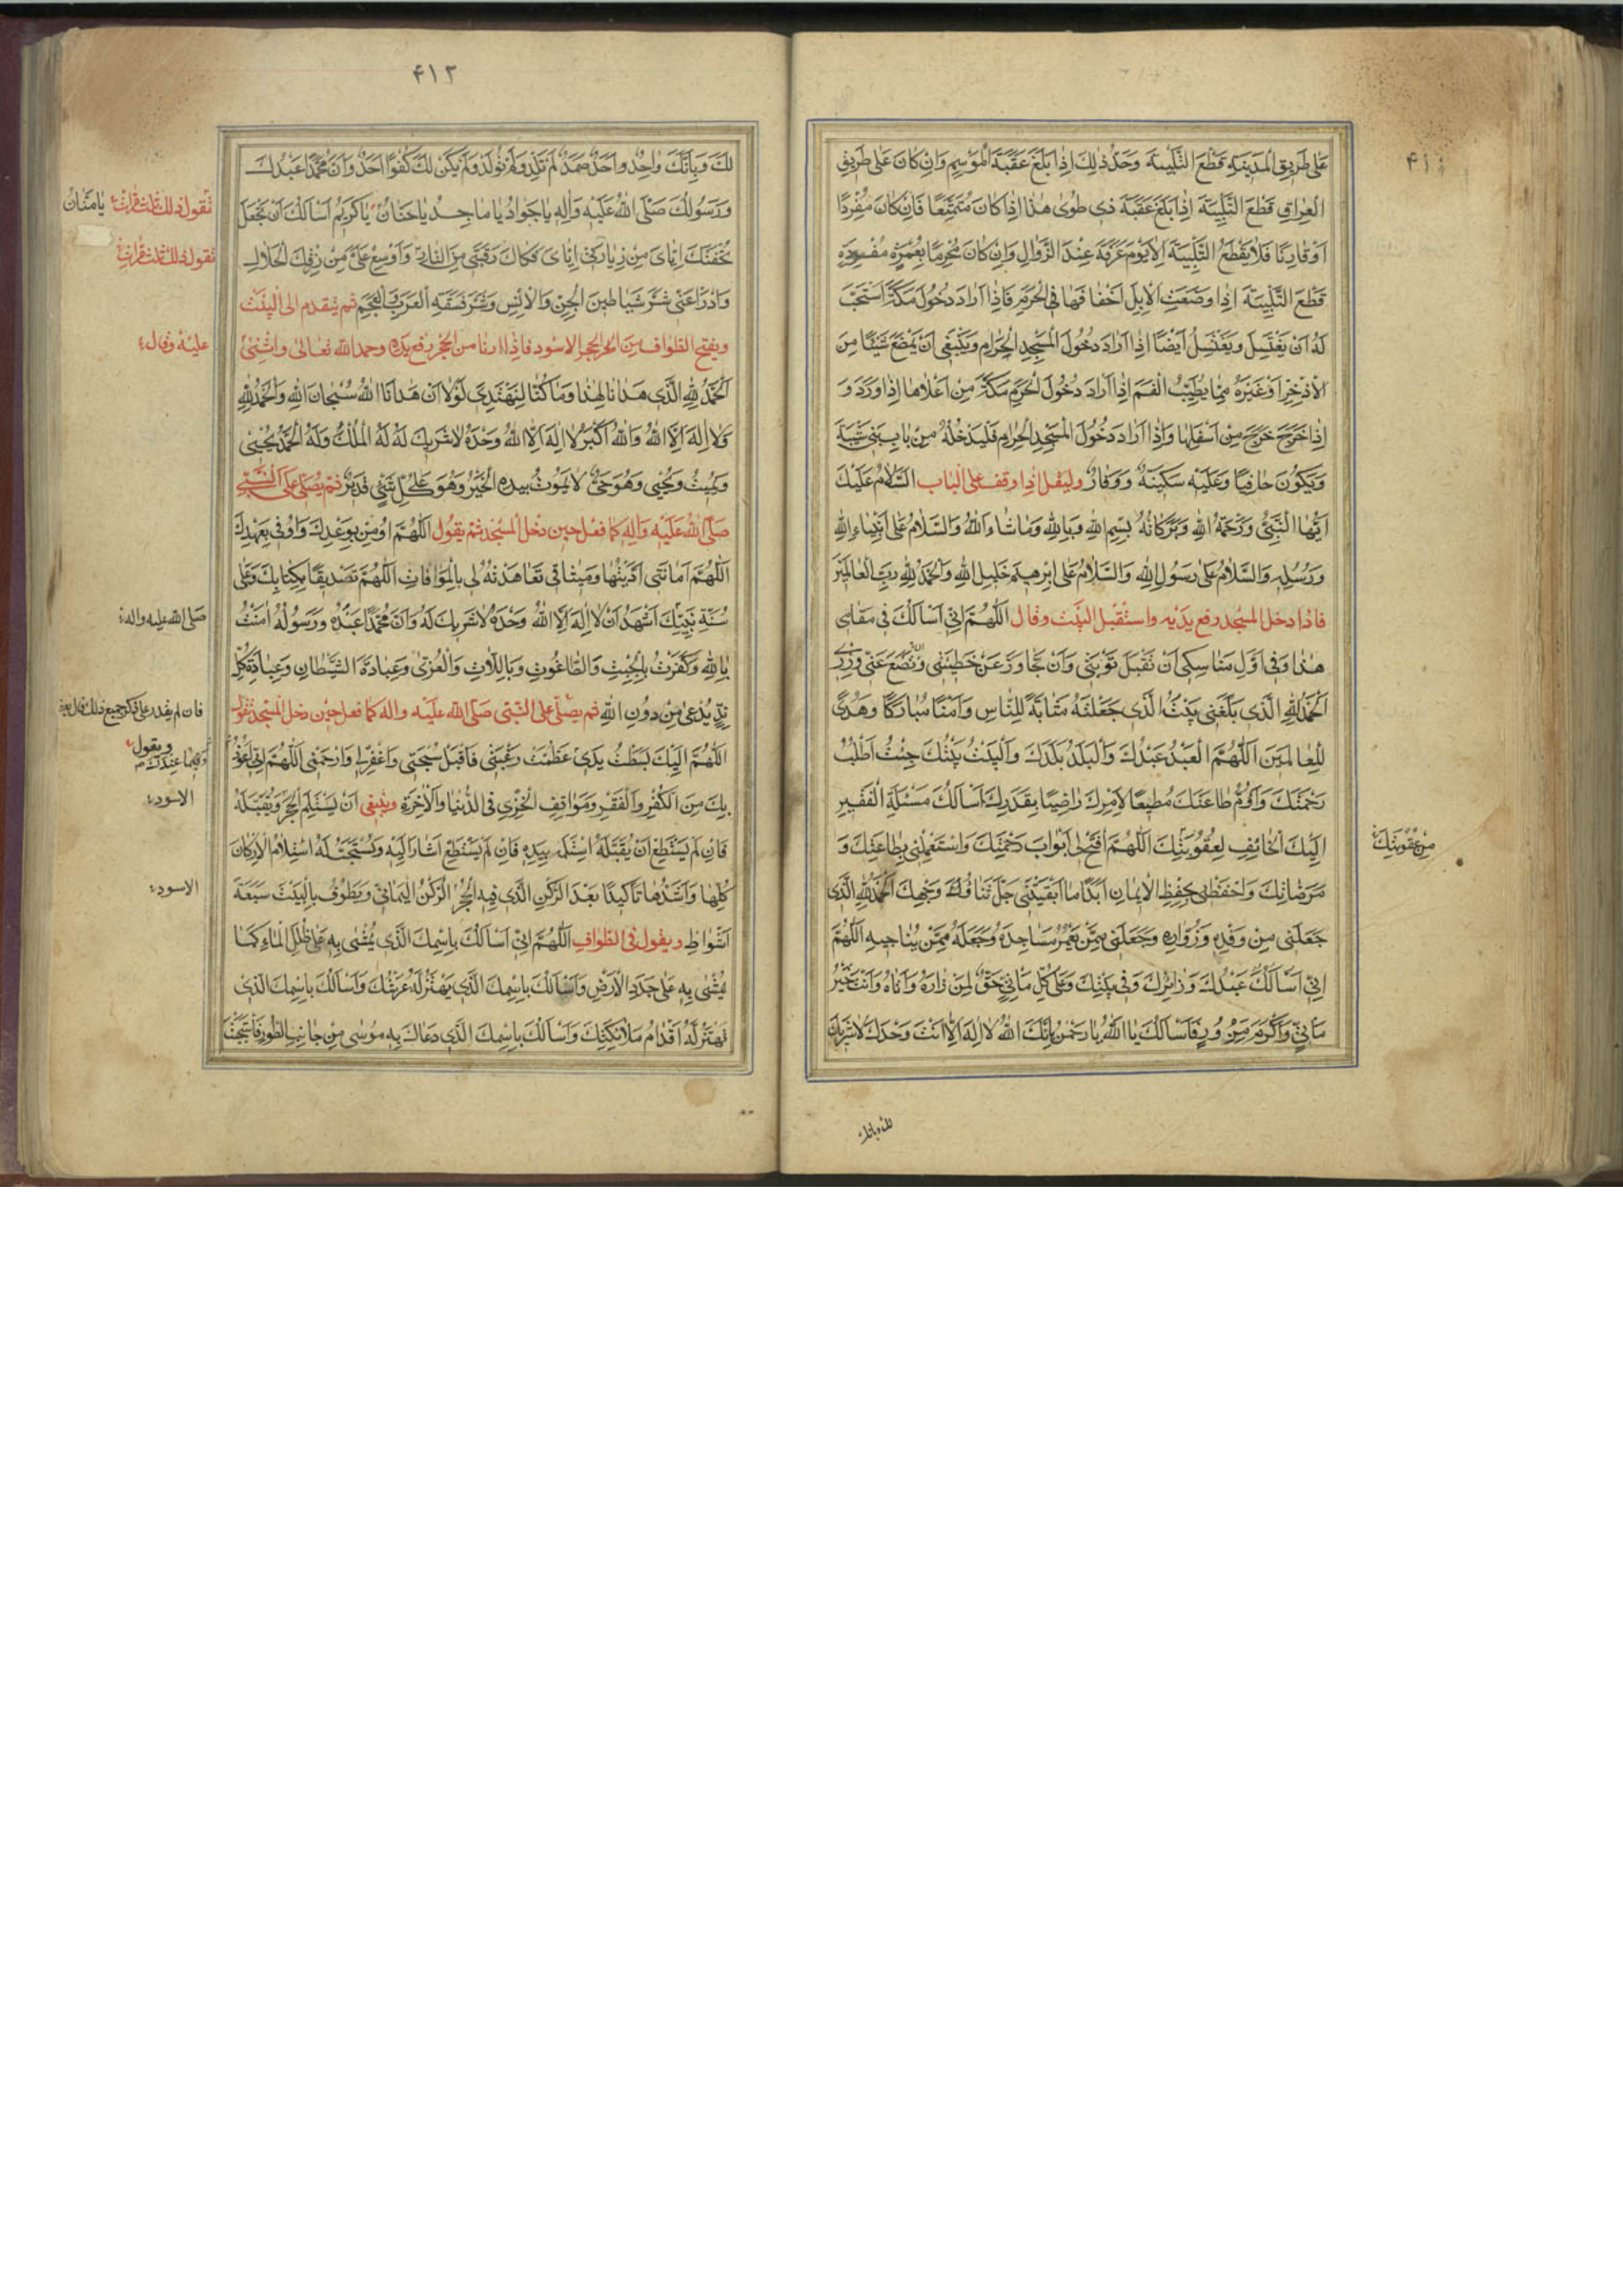 ۴۱۱
عَلى طَرِيقِ الْمَدِينَةِ قَطَعَ التَّلْبِيَةَ وَحَدُّ ذٰلِكَ اِذا بَلَغَ عَقَبَةَ الْمَوْسِمِ وَاِنْ كانَ عَلى طَرِيقِ
الْعِراقِ قَطَعَ التَّلْبِيَةَ اِذا بَلَغَ عَقَبَةَ ذى طُوى هٰذا اِذا كانَ مُتَمَتِّعًا فَاِنْ كانَ مُفْرِدًا
اَوْ قارِنًا فَلا يَقْطَعُ التَّلْبِيَةَ اِلّا يَوْمَ عَرَفَةَ عِنْدَ الزَّوالِ وَاِنْ كانَ مُحْرِمًا بِعُمْرَةٍ مُفْرَدَةٍ
قَطَعَ التَّلْبِيَةَ اِذا وَضَعَتِ الْاِبِلُ اَخْفافَها فِى الْحَرَمِ فَاِذا اَرادَ دُخُولَ مَكَّةَ اسْتُحِبَّ
لَهُ اَنْ يَغْتَسِلَ وَيَغْتَسِلُ اَيْضًا اِذا اَرادَ دُخُولَ الْمَسْجِدِ الْحَرامِ وَيَنْبَغى اَنْ يَمْضَغَ شَيْئًا مِنَ
الْاِذْخِرِ اَوْ غَيْرِهِ مِمّا يُطَيِّبُ الْفَمَ اِذا اَرادَ دُخُولَ الْحَرَمِ مَكَّةَ مِنْ اَعْلاها اِذا وَرَدَ وَ
اِذا خَرَجَ خَرَجَ مِنْ اَسْفَلِها وَاِذا اَرادَ دُخُولَ الْمَسْجِدِ الْحَرامِ فَلْيَدْخُلْهُ مِنْ بابِ بَنى شَيْبَةَ
وَيَكُونُ حافِيًا وَعَلَيْهِ سَكِينَةٌ وَوَقارٌ وليقل اذا وقف على الباب اَلسَّلامُ عَلَيْكَ
اَيُّهَا النَّبِىُّ وَرَحْمَةُ اللّٰهِ وَبَرَكاتُهُ بِسْمِ اللّٰهِ وَبِاللّٰهِ وَما شاءَ اللّٰهُ وَالسَّلامُ عَلى اَنْبِياءِ اللّٰهِ
وَرُسُلِهِ وَالسَّلامُ عَلى رَسُولِ اللّٰهِ وَالسَّلامُ عَلى اِبْرهِيمَ خَلِيلِ اللّٰهِ وَالْحَمْدُ لِلّٰهِ رَبِّ الْعالَمِينَ
فاذا دخل المسجد رفع يديه واستقبل البيت وقال اَللّٰهُمَّ اِنّى اَسْاَلُكَ فى مَقامى
هٰذا وَفى اَوَّلِ مَناسِكى اَنْ تَقْبَلَ تَوْبَتى وَاَنْ تَجاوَزَ عَنْ خَطِيئَتى وَتَضَعَ عَنّى وِزْرى
اَلْحَمْدُ لِلّٰهِ الَّذى بَلَّغَنى بَيْتَهُ الَّذى جَعَلْتَهُ مَثابَةً لِلنّاسِ وَاَمْنًا مُبارَكًا وَهُدًى
لِلْعالَمِينَ اَللّٰهُمَّ الْعَبْدُ عَبْدُكَ وَالْبَلَدُ بَلَدُكَ وَالْبَيْتُ بَيْتُكَ جِئْتُ اَطْلُبُ
رَحْمَتَكَ وَاَؤُمُّ طاعَتَكَ مُطِيعًا لِاَمْرِكَ راضِيًا بِقَدَرِكَ اَسْاَلُكَ مَسْئَلَةَ الْفَقِيرِ
اِلَيْكَ الْخائِفِ لِعُقُوبَتِكَ اَللّٰهُمَّ افْتَحْ لى اَبْوابَ رَحْمَتِكَ وَاسْتَعْمِلْنى بِطاعَتِكَ وَ
مِنْ عُقُوبَتِكَ
مَرَضاتِكَ وَاحْفَظْنى بِحِفْظِ الْايمانِ اَبَدًا ما اَبْقَيْتَنى جَلَّ ثَناءُ وَجْهِكَ اَلْحَمْدُ لِلّٰهِ الَّذى
جَعَلَنى مِنْ وَفْدِهِ وَزُوّارِهِ وَجَعَلَنى مِمَّنْ يَعْمُرُ مَساجِدَهُ وَجَعَلَهُ مِمَّنْ يُناجيهِ اَللّٰهُمَّ
اِنّى اَسْاَلُكَ عَبْدُكَ وَزائِرُكَ وَفى بَيْتِكَ وَعَلى كُلِّ مَاْتِىٍّ حَقٌّ لِمَنْ زارَهُ وَاَتاهُ وَاَنْتَ خَيْرُ
مَاْتِىٍّ وَاَكْرَمُ مَزُورٍ فَاَسْاَلُكَ يا اَللّٰهُ يا رَحْمٰنُ بِاَنَّكَ اللّٰهُ لا اِلٰهَ اِلّا اَنْتَ وَحْدَكَ لا شَرِيكَ
لك وبانك
۴۱۲
لَكَ وَبِاَنَّكَ واحِدٌ واَحَدٌ صَمَدٌ لَمْ تَلِدْ وَلَمْ تُولَدْ وَلَمْ يَكُنْ لَكَ كُفُوًا اَحَدٌ وَاَنَّ مُحَمَّدًا عَبْدُكَ
وَرَسُولُكَ صَلَّى اللّٰهُ عَلَيْهِ وَاٰلِهِ يا جَوادُ يا ماجِدُ يا حَنّانُ يا كَرِيمُ اَسْاَلُكَ اَنْ تَجْعَلَ
تقول ذلك ثلث مرات يا مَنّانُ
تُحْفَتَكَ اِيّاىَ مِنْ زِيارَتى اِيّاىَ فَكاكَ رَقَبَتى مِنَ النّارِ وَاَوْسِعْ عَلَىَّ مِنْ رِزْقِكَ الْحَلالِ
تقول ذلك ثلث مرات
وَادْرَاْ عَنّى شَرَّ شَياطِينِ الْجِنِّ وَالْاِنْسِ وَشَرَّ فَسَقَةِ الْعَرَبِ وَالْعَجَمِ ثم يتقدم الى البيت
ويفتح الطواف من الحجر الاسود فاذا دنا من الحجر رفع يده وحمد الله تعالى واثنى
عليه وقال
اَلْحَمْدُ لِلّٰهِ الَّذى هَدانا لِهٰذا وَما كُنّا لِنَهْتَدِىَ لَوْلا اَنْ هَدانَا اللّٰهُ سُبْحانَ اللّٰهِ وَالْحَمْدُ لِلّٰهِ
وَلا اِلٰهَ اِلَّا اللّٰهُ وَاللّٰهُ اَكْبَرُ لا اِلٰهَ اِلَّا اللّٰهُ وَحْدَهُ لا شَرِيكَ لَهُ لَهُ الْمُلْكُ وَلَهُ الْحَمْدُ يُحْيى
وَيُمِيتُ وَيُحْيى وَهُوَ حَىٌّ لا يَمُوتُ بِيَدِهِ الْخَيْرُ وَهُوَ عَلى كُلِّ شَىْءٍ قَدِيرٌ ثم يُصَلّى على النَّبِىِّ
صَلَّى اللّٰهُ عَلَيْهِ وَاٰلِهِ كما فعل حين دخل المسجد ثم يقول اَللّٰهُمَّ اُومِنُ بِوَعْدِكَ وَاُوفى بِعَهْدِكَ
اَللّٰهُمَّ اَمانَتى اَدَّيْتُها وَمِيثاقى تَعاهَدْتُهُ لى بِالْمُوافاتِ اَللّٰهُمَّ تَصْدِيقًا بِكِتابِكَ وَعَلى
سُنَّةِ نَبِيِّكَ اَشْهَدُ اَنْ لا اِلٰهَ اِلَّا اللّٰهُ وَحْدَهُ لا شَرِيكَ لَهُ وَاَنَّ مُحَمَّدًا عَبْدُهُ وَرَسُولُهُ اٰمَنْتُ
صلى الله عليه واله
بِاللّٰهِ وَكَفَرْتُ بِالْجِبْتِ وَالطّاغُوتِ وَبِاللّاتِ وَالْعُزّى وَعِبادَةِ الشَّيْطانِ وَعِبادَةِ كُلِّ
نِدٍّ يُدْعى مِنْ دُونِ اللّٰهِ ثم يصلى على النبى صلى الله عليه واله كما فعل حين دخل المسجد تقول
فان لم يقدر على ذكر جميع ذلك قال بعضه
اَللّٰهُمَّ اِلَيْكَ بَسَطْتُ يَدى وَعَظُمَتْ رَغْبَتى فَاقْبَلْ سُبْحَتى وَاغْفِرْ لى وَارْحَمْنى اَللّٰهُمَّ اِنّى اَعُوذُ
ويقول
وَفيما عِنْدَكَ
بِكَ مِنَ الْكُفْرِ وَالْفَقْرِ وَمَواقِفِ الْخِزْىِ فِى الدُّنْيا وَالْاٰخِرَةِ وينبغى اَنْ يَسْتَلِمَ الْحَجَرَ وَيُقَبِّلَهُ
الاسود
فَاِنْ لَمْ يَسْتَطِعْ اَنْ يُقَبِّلَهُ اسْتَلَمَهُ بِيَدِهِ فَاِنْ لَمْ يَسْتَطِعْ اَشارَ اِلَيْهِ وَيُسْتَحَبُّ لَهُ اسْتِلامُ الْاَرْكانِ
كُلِّها وَاَشَدُّها تَأْكِيدًا بَعْدَ الرُّكْنِ الَّذى فِيهِ الْحَجَرُ الرُّكْنُ الْيَمانِىُّ وَيَطُوفُ بِالْبَيْتِ سَبْعَةَ
الاسود
اَشْواطٍ ويقول فى الطواف اَللّٰهُمَّ اِنّى اَسْاَلُكَ بِاسْمِكَ الَّذى يُمْشى بِهِ عَلى طَلَلِ الْماءِ كَما
يُمْشى بِهِ عَلى جَدَدِ الْاَرْضِ وَاَسْاَلُكَ بِاسْمِكَ الَّذى يَهْتَزُّ لَهُ عَرْشُكَ وَاَسْاَلُكَ بِاسْمِكَ الَّذى
تَهْتَزُّ لَهُ اَقْدامُ مَلائِكَتِكَ وَاَسْاَلُكَ بِاسْمِكَ الَّذى دَعاكَ بِهِ مُوسى مِنْ جانِبِ الطُّورِ فَاسْتَجَبْتَ